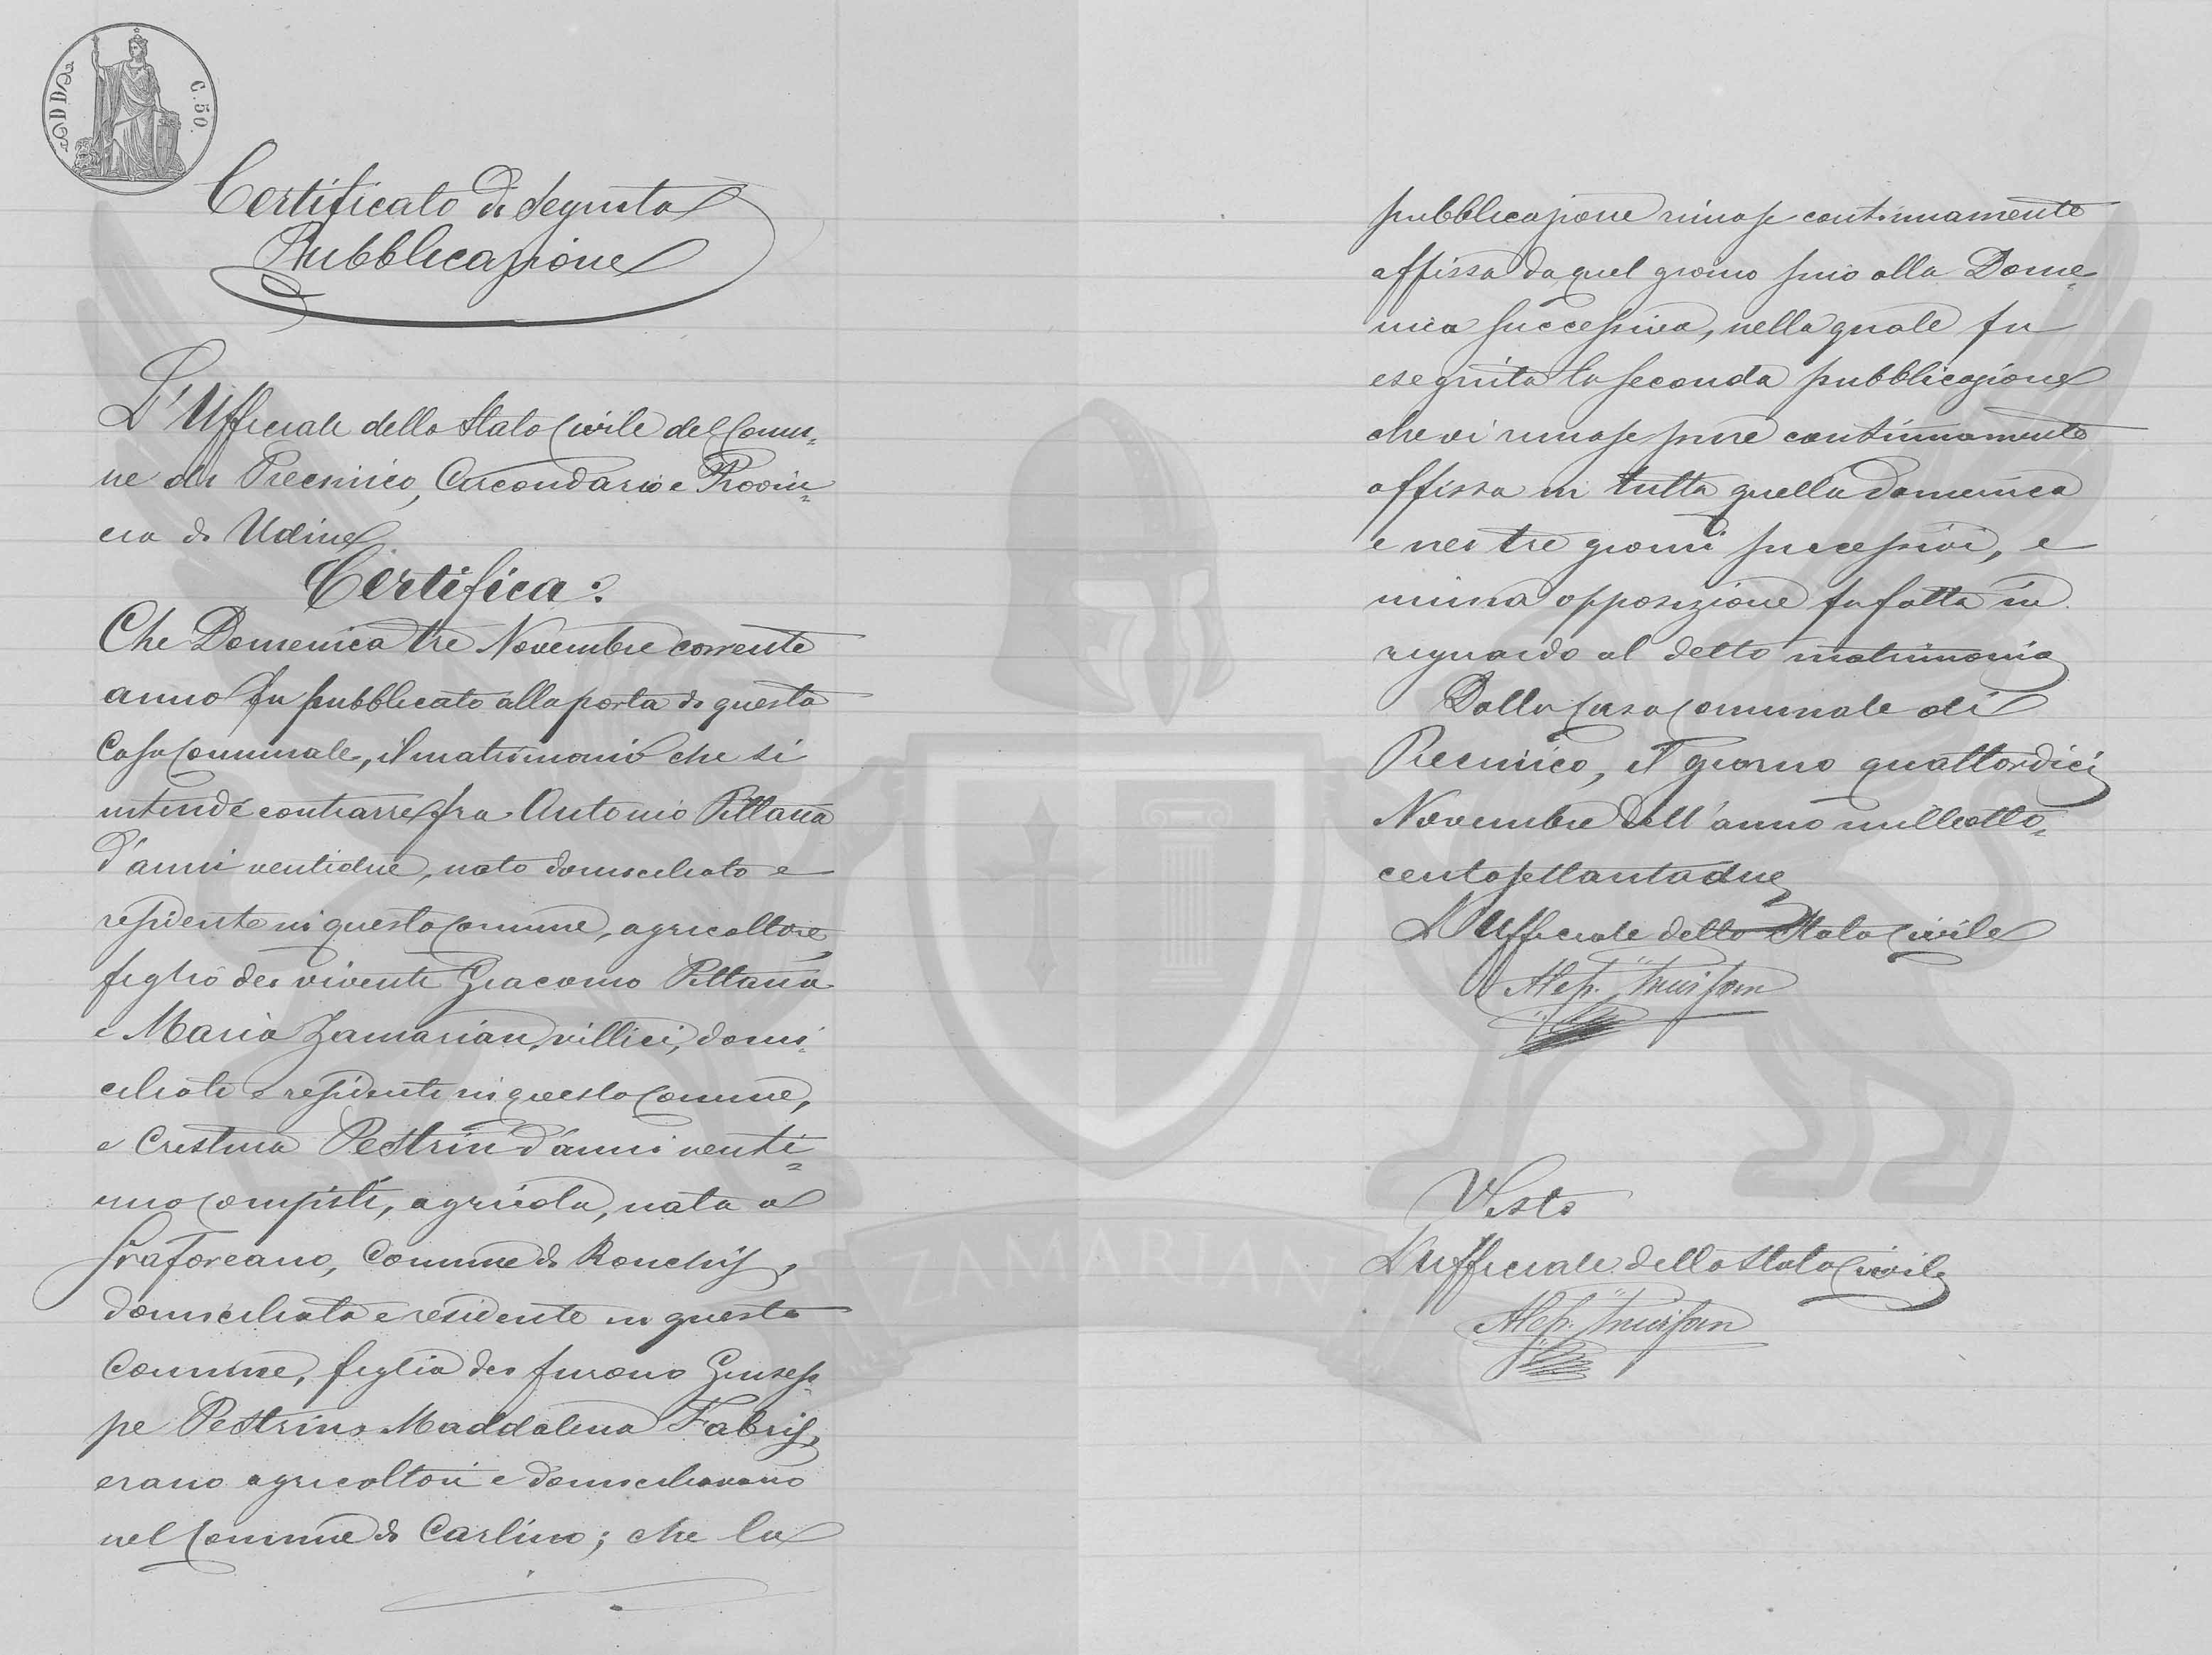 C. 50.
Certificato di seguita
Pubblicazione
L'Ufficiale dello Stato Civile del Comu=
ne di Precenico, Circondario e Provin=
cia di Udine
Certifica:
Che Domenica tre Novembre corrente
anno fu pubblicato alla porta di questa
Casa Comunale, il matrimonio che si
intende contrarre fra Antonio Pittana
d'anni ventidue, nato domiciliato e
residente in questo Comune, agricoltore,
figlio dei viventi Giacomo Pittana
e Maria Zamarian, villici, domi=
ciliati e residenti in questo Comune,
e Cristina Pestrin d'anni venti=
uno compiti, agricola, nata a
Fraforeano, Comune di Ronchis,
domiciliata e residente in questo
Comune, figlia dei furono Giusep=
pe Pestrin e Maddalena Fabris,
erano agricoltori e domiciliavano
nel Comune di Carlino; che la
pubblicazione rimase continuamente
affissa da quel giorno sino alla Dome=
nica successiva, nella quale fu
eseguita la seconda pubblicazione
che vi rimase pure continuamente
affissa in tutta quella domenica
e nei tre giorni successivi, e
niuna opposizione fu fatta in
riguardo al detto matrimonio
Dalla Casa Comunale di
Precenico, il giorno quattordici
Novembre dell'anno milleotto=
centosettantadue
L'Ufficiale dello Stato Civile
Visto
L'Ufficiale dello Stato Civile
ZAMARIAN